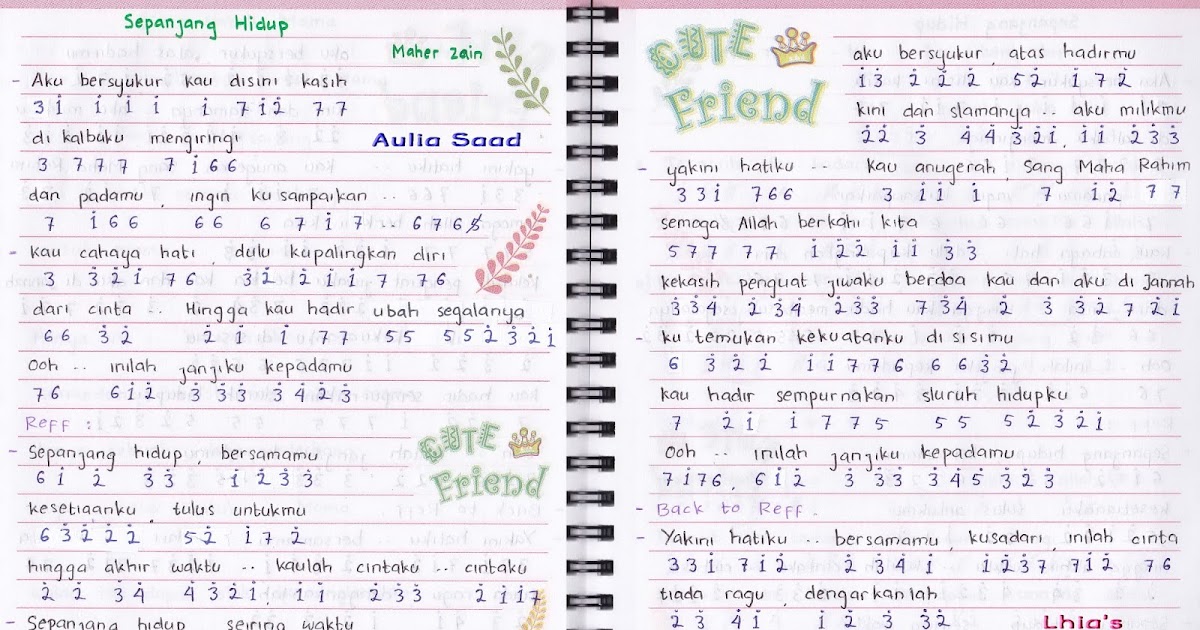 Sepanjang Hidup
Maher Zain
- Aku bersyukur kau disini kasih
3 1̇ 1̇ 1̇ 1̇ 1̇ 7 1̇ 2̇ 7 7
di kalbuku mengiringi
3 7 7 7 7 1̇ 6 6
Aulia Saad
dan padamu, ingin ku sampaikan ..
7 1̇ 6 6 6 6 6 7 1̇ 7 ... 6 7 6 5
- kau cahaya hati, dulu kupalingkan diri
3 3̇ 2̇ 1̇ 7 6 3̇ 2̇ 2̇ 1̇ 1̇ 7 7 7 6
dari cinta .. Hingga kau hadir ubah segalanya
6 6 3̇ 2̇ 2̇ 1̇ 1̇ 1̇ 7 7 5 5 5 5 2̇ 3̇ 2̇ 1̇
Ooh .. inilah janjiku kepadamu
7 6 6 1̇ 2̇ 3̇ 3̇ 3̇ 3̇ 4̇ 2̇ 3̇
Reff :
- Sepanjang hidup, bersamamu
6 1̇ 2̇ 3̇ 3̇ 1̇ 2̇ 3̇ 3̇
CUTE
Friend
kesetiaanku, tulus untukmu
6 3̇ 2̇ 2̇ 2̇ 5 2̇ 1̇ 7 2̇
hingga akhir waktu .. kaulah cintaku .. cintaku
2̇ 2̇ 3̇ 4̇ 4̇ 3̇ 2̇ 1̇ 1̇ 1̇ 2̇ 3̇ 3̇ 2̇ 1̇ 1̇ 7
- Sepanjang hidup seiring waktu
CUTE
Friend
aku bersyukur, atas hadirmu
1̇ 3̇ 2̇ 2̇ 2̇ 5 2̇ 1̇ 7 2̇
kini dan slamanya .. aku milikmu
2̇ 2̇ 3̇ 4̇ 4̇ 3̇ 2̇ 1̇, 1̇ 1̇ 2̇ 3̇ 3̇
- yakini hatiku .. Kau anugerah Sang Maha Rahim
3 3 1̇ 7 6 6 3 1̇ 1̇ 1̇ 7 1̇ 2̇ 7 7
semoga Allah berkahi kita
5 7 7 7 7 1̇ 2̇ 2̇ 1̇ 1̇ 3̇ 3̇
kekasih penguat jiwaku berdoa kau dan aku di Jannah
3̇ 3̇ 4̇ 2̇ 3̇ 4̇ 2̇ 3̇ 3̇ 7 3̇ 4̇ 2̇ 3̇ 3̇ 2̇ 7 2̇ 1̇
- ku temukan kekuatanku disisimu
6 3̇ 2̇ 2̇ 1̇ 1̇ 7 7 6 6 6 3̇ 2̇
kau hadir sempurnakan sluruh hidupku
7 2̇ 1̇ 1̇ 7 7 5 5 5 5 2̇ 3̇ 2̇ 1̇
Ooh .. inilah janjiku kepadamu
7 1̇ 7 6, 6 1̇ 2̇ 3̇ 3̇ 3̇ 3̇ 4̇ 5̇ 3̇ 2̇ 3̇
- Back to Reff.
- Yakini hatiku .. bersamamu, kusadari, inilah cinta
3 3 1̇ 7 1̇ 2̇ 2̇ 3̇ 4̇ 1̇ 1̇ 2̇ 3̇ 7 7 1̇ 2̇ 7 6
tiada ragu, dengarkanlah
2̇ 3̇ 4̇ 1̇ 1̇ 2̇ 3̇ 3̇ 2̇
Lhia's